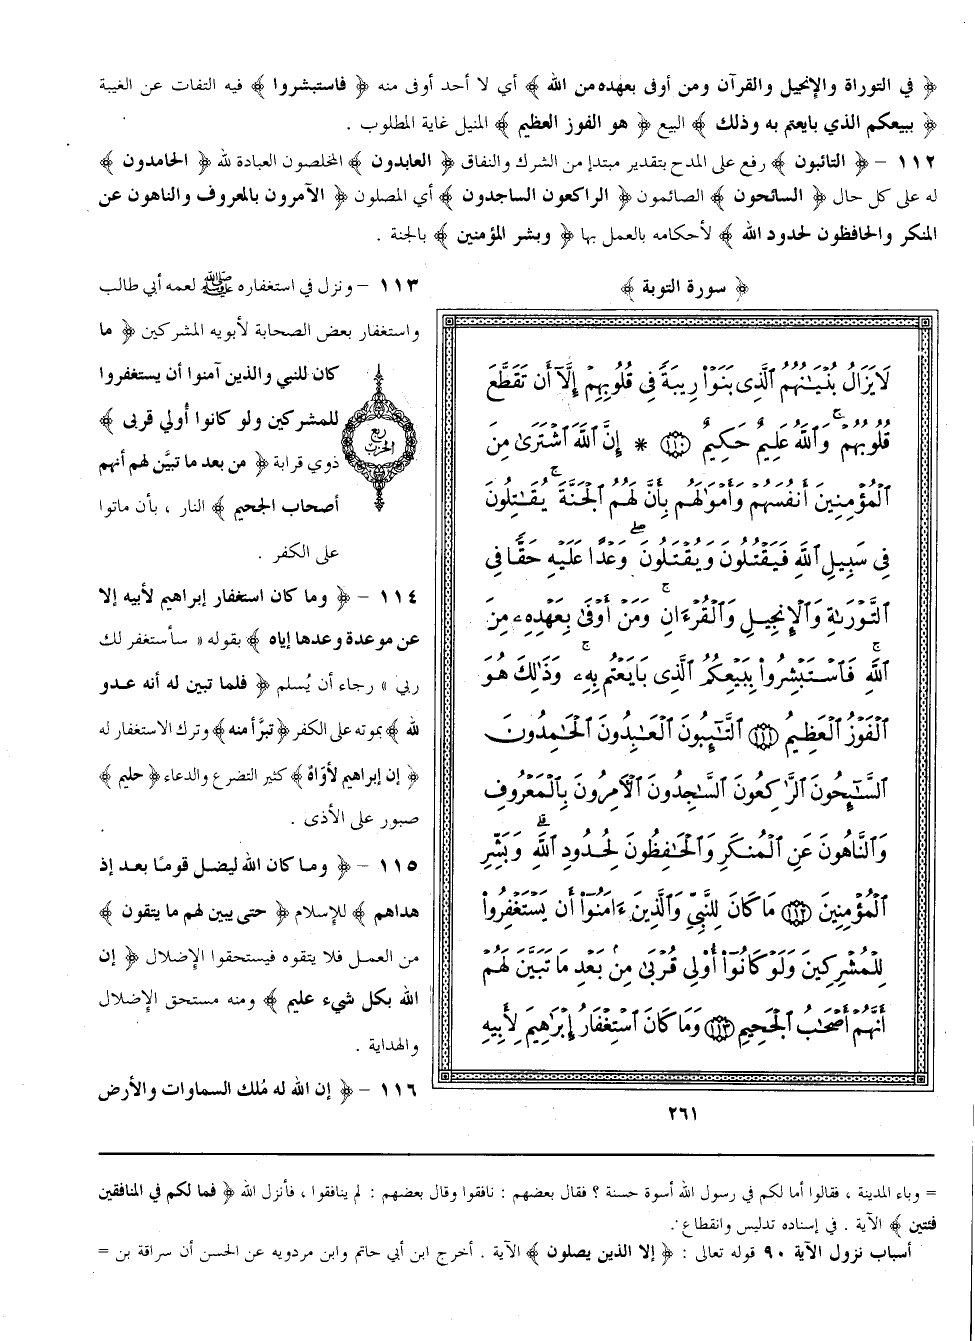 ﴿ في التوراة والإنجيل والقرآن ومن أوفى بعهده من الله ﴾ أي لا أحد أوفى منه ﴿ فاستبشروا ﴾ فيه التفات عن الغيبة
﴿ ببيعكم الذي بايعتم به وذلك ﴾ البيع ﴿ هو الفوز العظيم ﴾ المنيل غاية المطلوب .
١١٢ - ﴿ التائبون ﴾ رفع على المدح بتقدير مبتدإ من الشرك والنفاق ﴿ العابدون ﴾ المخلصون العبادة لله ﴿ الحامدون ﴾
له على كل حال ﴿ السائحون ﴾ الصائمون ﴿ الراكعون الساجدون ﴾ أي المصلون ﴿ الآمرون بالمعروف والناهون عن
المنكر والحافظون لحدود الله ﴾ لأحكامه بالعمل بها ﴿ وبشر المؤمنين ﴾ بالجنة .
﴿ سورة التوبة ﴾
لَا يَزَالُ بُنْيَـٰنُهُمُ ٱلَّذِى بَنَوْا۟ رِيبَةً فِى قُلُوبِهِمْ إِلَّآ أَن تَقَطَّعَ
قُلُوبُهُمْ ۗ وَٱللَّهُ عَلِيمٌ حَكِيمٌ ١١٠ * إِنَّ ٱللَّهَ ٱشْتَرَىٰ مِنَ
ٱلْمُؤْمِنِينَ أَنفُسَهُمْ وَأَمْوَٰلَهُم بِأَنَّ لَهُمُ ٱلْجَنَّةَ ۚ يُقَـٰتِلُونَ
فِى سَبِيلِ ٱللَّهِ فَيَقْتُلُونَ وَيُقْتَلُونَ ۖ وَعْدًا عَلَيْهِ حَقًّا فِى
ٱلتَّوْرَىٰةِ وَٱلْإِنجِيلِ وَٱلْقُرْءَانِ ۚ وَمَنْ أَوْفَىٰ بِعَهْدِهِۦ مِنَ
ٱللَّهِ ۚ فَٱسْتَبْشِرُوا۟ بِبَيْعِكُمُ ٱلَّذِى بَايَعْتُم بِهِۦ ۚ وَذَٰلِكَ هُوَ
ٱلْفَوْزُ ٱلْعَظِيمُ ١١١ ٱلتَّـٰٓئِبُونَ ٱلْعَـٰبِدُونَ ٱلْحَـٰمِدُونَ
ٱلسَّـٰٓئِحُونَ ٱلرَّٰكِعُونَ ٱلسَّـٰجِدُونَ ٱلْـَٔامِرُونَ بِٱلْمَعْرُوفِ
وَٱلنَّاهُونَ عَنِ ٱلْمُنكَرِ وَٱلْحَـٰفِظُونَ لِحُدُودِ ٱللَّهِ ۗ وَبَشِّرِ
ٱلْمُؤْمِنِينَ ١١٢ مَا كَانَ لِلنَّبِىِّ وَٱلَّذِينَ ءَامَنُوٓا۟ أَن يَسْتَغْفِرُوا۟
لِلْمُشْرِكِينَ وَلَوْ كَانُوٓا۟ أُو۟لِى قُرْبَىٰ مِنۢ بَعْدِ مَا تَبَيَّنَ لَهُمْ
أَنَّهُمْ أَصْحَـٰبُ ٱلْجَحِيمِ ١١٣ وَمَا كَانَ ٱسْتِغْفَارُ إِبْرَٰهِيمَ لِأَبِيهِ
٢٦١
ربع
الحزب
١١٣ - ونزل في استغفاره ﷺ لعمه أبي طالب
واستغفار بعض الصحابة لأبويه المشركين ﴿ ما
كان للنبي والذين آمنوا أن يستغفروا
للمشركين ولو كانوا أولي قربى ﴾
ذوي قرابة ﴿ من بعد ما تبيَّن لهم أنهم
أصحاب الجحيم ﴾ النار ، بأن ماتوا
على الكفر .
١١٤ - ﴿ وما كان استغفار إبراهيم لأبيه إلا
عن موعدة وعدها إياه ﴾ بقوله « سأستغفر لك
ربي » رجاء أن يُسلم ﴿ فلما تبين له أنه عدو
لله ﴾ بموته على الكفر ﴿ تبرَّأ منه ﴾ وترك الاستغفار له
﴿ إن إبراهيم لأوّاهٌ ﴾ كثير التضرع والدعاء ﴿ حليم ﴾
صبور على الأذى .
١١٥ - ﴿ وما كان الله ليضل قومًا بعد إذ
هداهم ﴾ للإسلام ﴿ حتى يبين لهم ما يتقون ﴾
من العمل فلا يتقوه فيستحقوا الإضلال ﴿ إن
الله بكل شيء عليم ﴾ ومنه مستحق الإضلال
والهداية .
١١٦ - ﴿ إن الله له مُلك السماوات والأرض
= وباء المدينة ، فقالوا أما لكم في رسول الله أسوة حسنة ؟ فقال بعضهم : نافقوا وقال بعضهم : لم ينافقوا ، فأنزل الله ﴿ فما لكم في المنافقين
فئتين ﴾ الآية . في إسناده تدليس وانقطاع .
أسباب نزول الآية ٩٠ قوله تعالى : ﴿ إلا الذين يصلون ﴾ الآية . أخرج ابن أبي حاتم وابن مردويه عن الحسن أن سراقة بن =